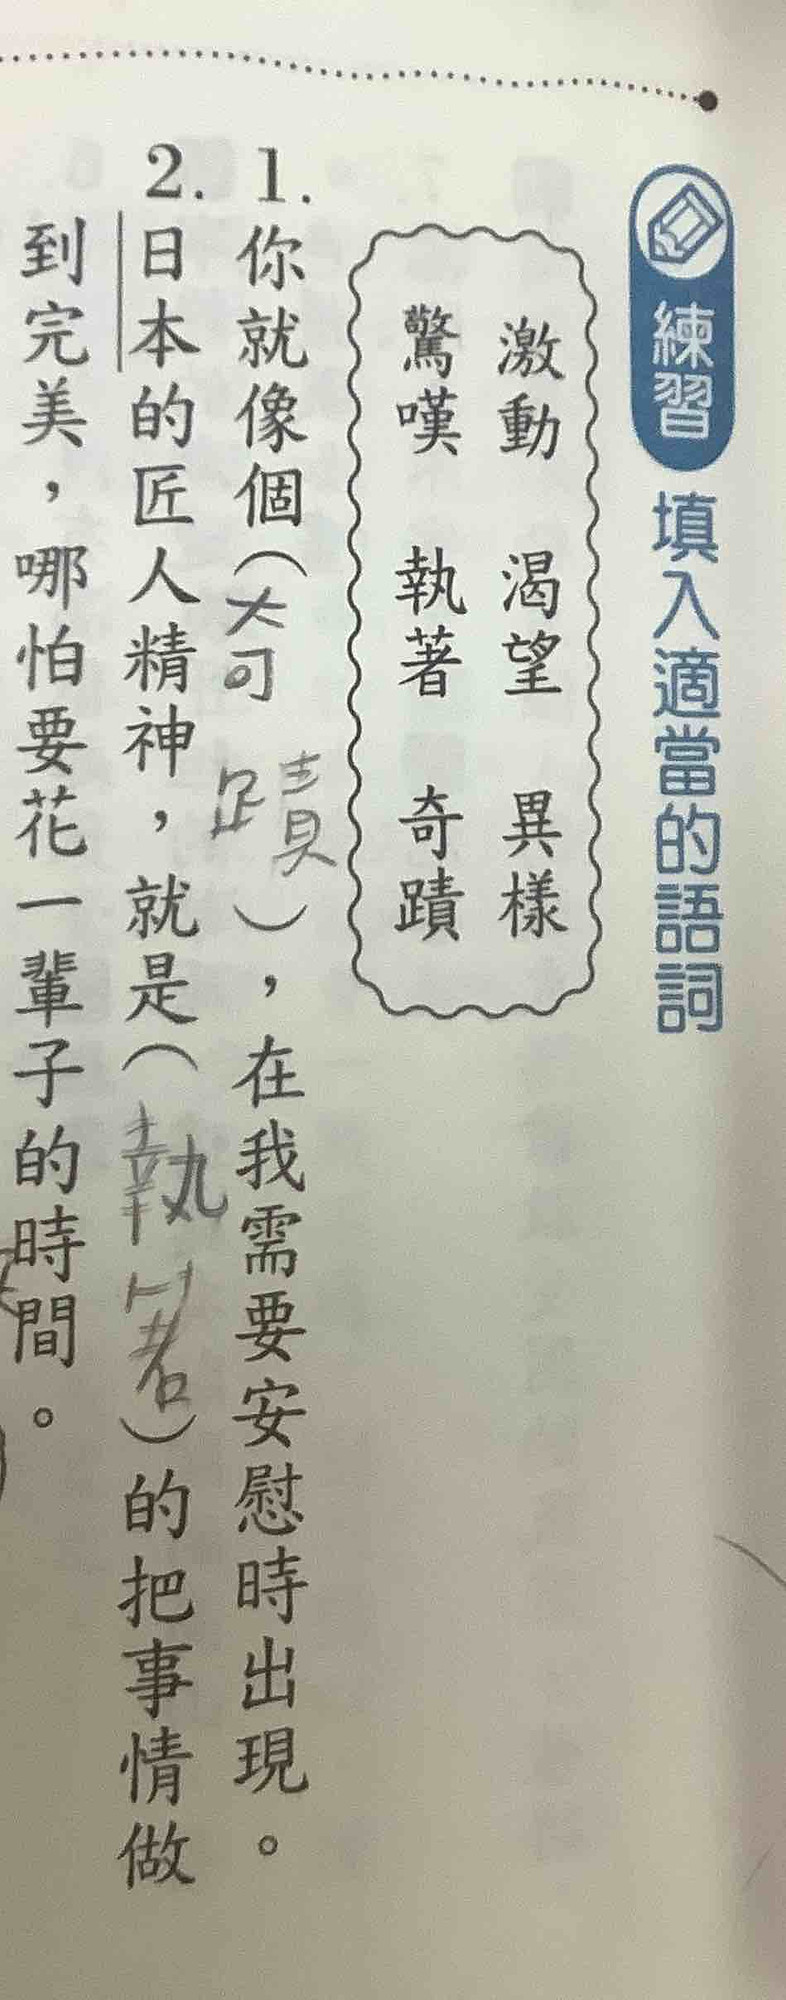 練習 填入適當的語詞
激動 渴望 異樣
驚嘆 執著 奇蹟
1. 你就像個(奇蹟),在我需要安慰時出現。
2. 日本的匠人精神,就是(執著)的把事情做
到完美,哪怕要花一輩子的時間。